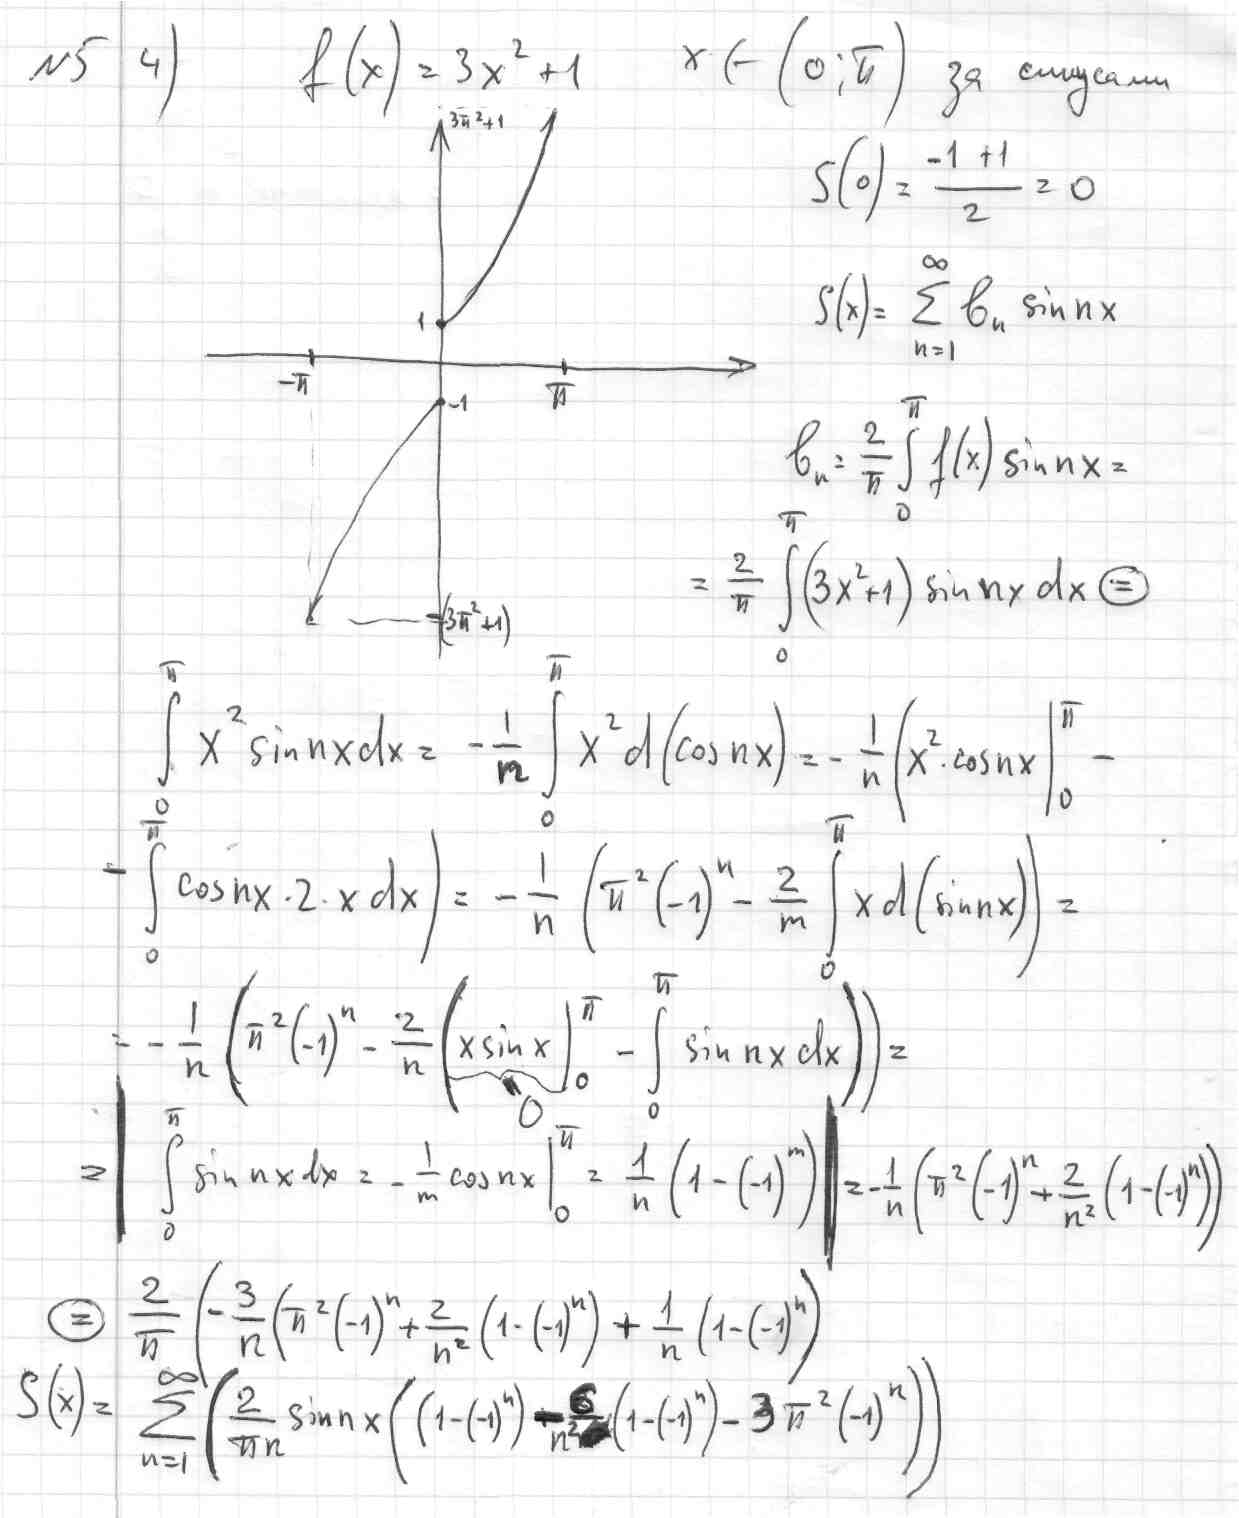 №5 4) f(x) = 3x² + 1 x ∈ (0; π) за синусами
3π²+1
S(0) = (-1 + 1)/2 = 0
S(x) = ∑_{n=1}^{∞} bₙ sin nx
1
-π π
-1
bₙ = 2/π ∫₀^π f(x) sin nx =
= 2/π ∫₀^π (3x²+1) sin nx dx (=)
-(3π²+1)
∫₀^π x² sin nx dx = -1/n ∫₀^π x² d(cos nx) = -1/n (x²·cos nx |₀^π -
- ∫₀^π cos nx · 2 · x dx) = -1/n (π²(-1)ⁿ - 2/n ∫₀^π x d(sin nx)) =
= -1/n (π²(-1)ⁿ - 2/n (x sin x |₀^π - ∫₀^π sin nx dx)) =
0
= | ∫₀^π sin nx dx = -1/n cos nx |₀^π = 1/n (1-(-1)ⁿ) | = -1/n (π²(-1)ⁿ + 2/n² (1-(-1)ⁿ))
(=) 2/π (-3/n (π²(-1)ⁿ + 2/n² (1-(-1)ⁿ) + 1/n (1-(-1)ⁿ)
S(x) = ∑_{n=1}^{∞} (2/πn sin nx ((1-(-1)ⁿ) - 6/n² (1-(-1)ⁿ) - 3π²(-1)ⁿ))